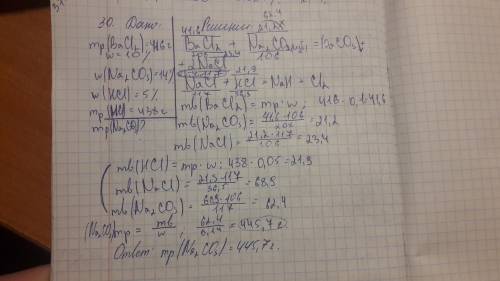 30. Дано:
mр(BaCl₂)=416г
w=10%
w(Na₂CO₃)=14%
w(HCl)=5%
mр(HCl)=438г
mр(Na₂CO₃)?
Решение
41,6 62,4
BaCl₂ + Na₂CO₃ = BaCO₃↓
106
+ 2NaCl 23,4
117
21,9
NaCl + HCl = NaH + Cl₂
117 36,5
mв(BaCl₂) = mр·w; 416·0,1=41,6
mв(Na₂CO₃) = 41,6·106/208 = 21,2
mв(NaCl) = 21,2·117/106 = 23,4
mв(HCl) = mр·w; 438·0,05=21,9
mв(NaCl) = 21,9·117/36,5 = 68,9
mв(Na₂CO₃) = 68,9·106/117 = 62,4
(Na₂CO₃)mр = mв/w; 62,4/0,14 = 445,7г.
Ответ: mр(Na₂CO₃)=445,7г.